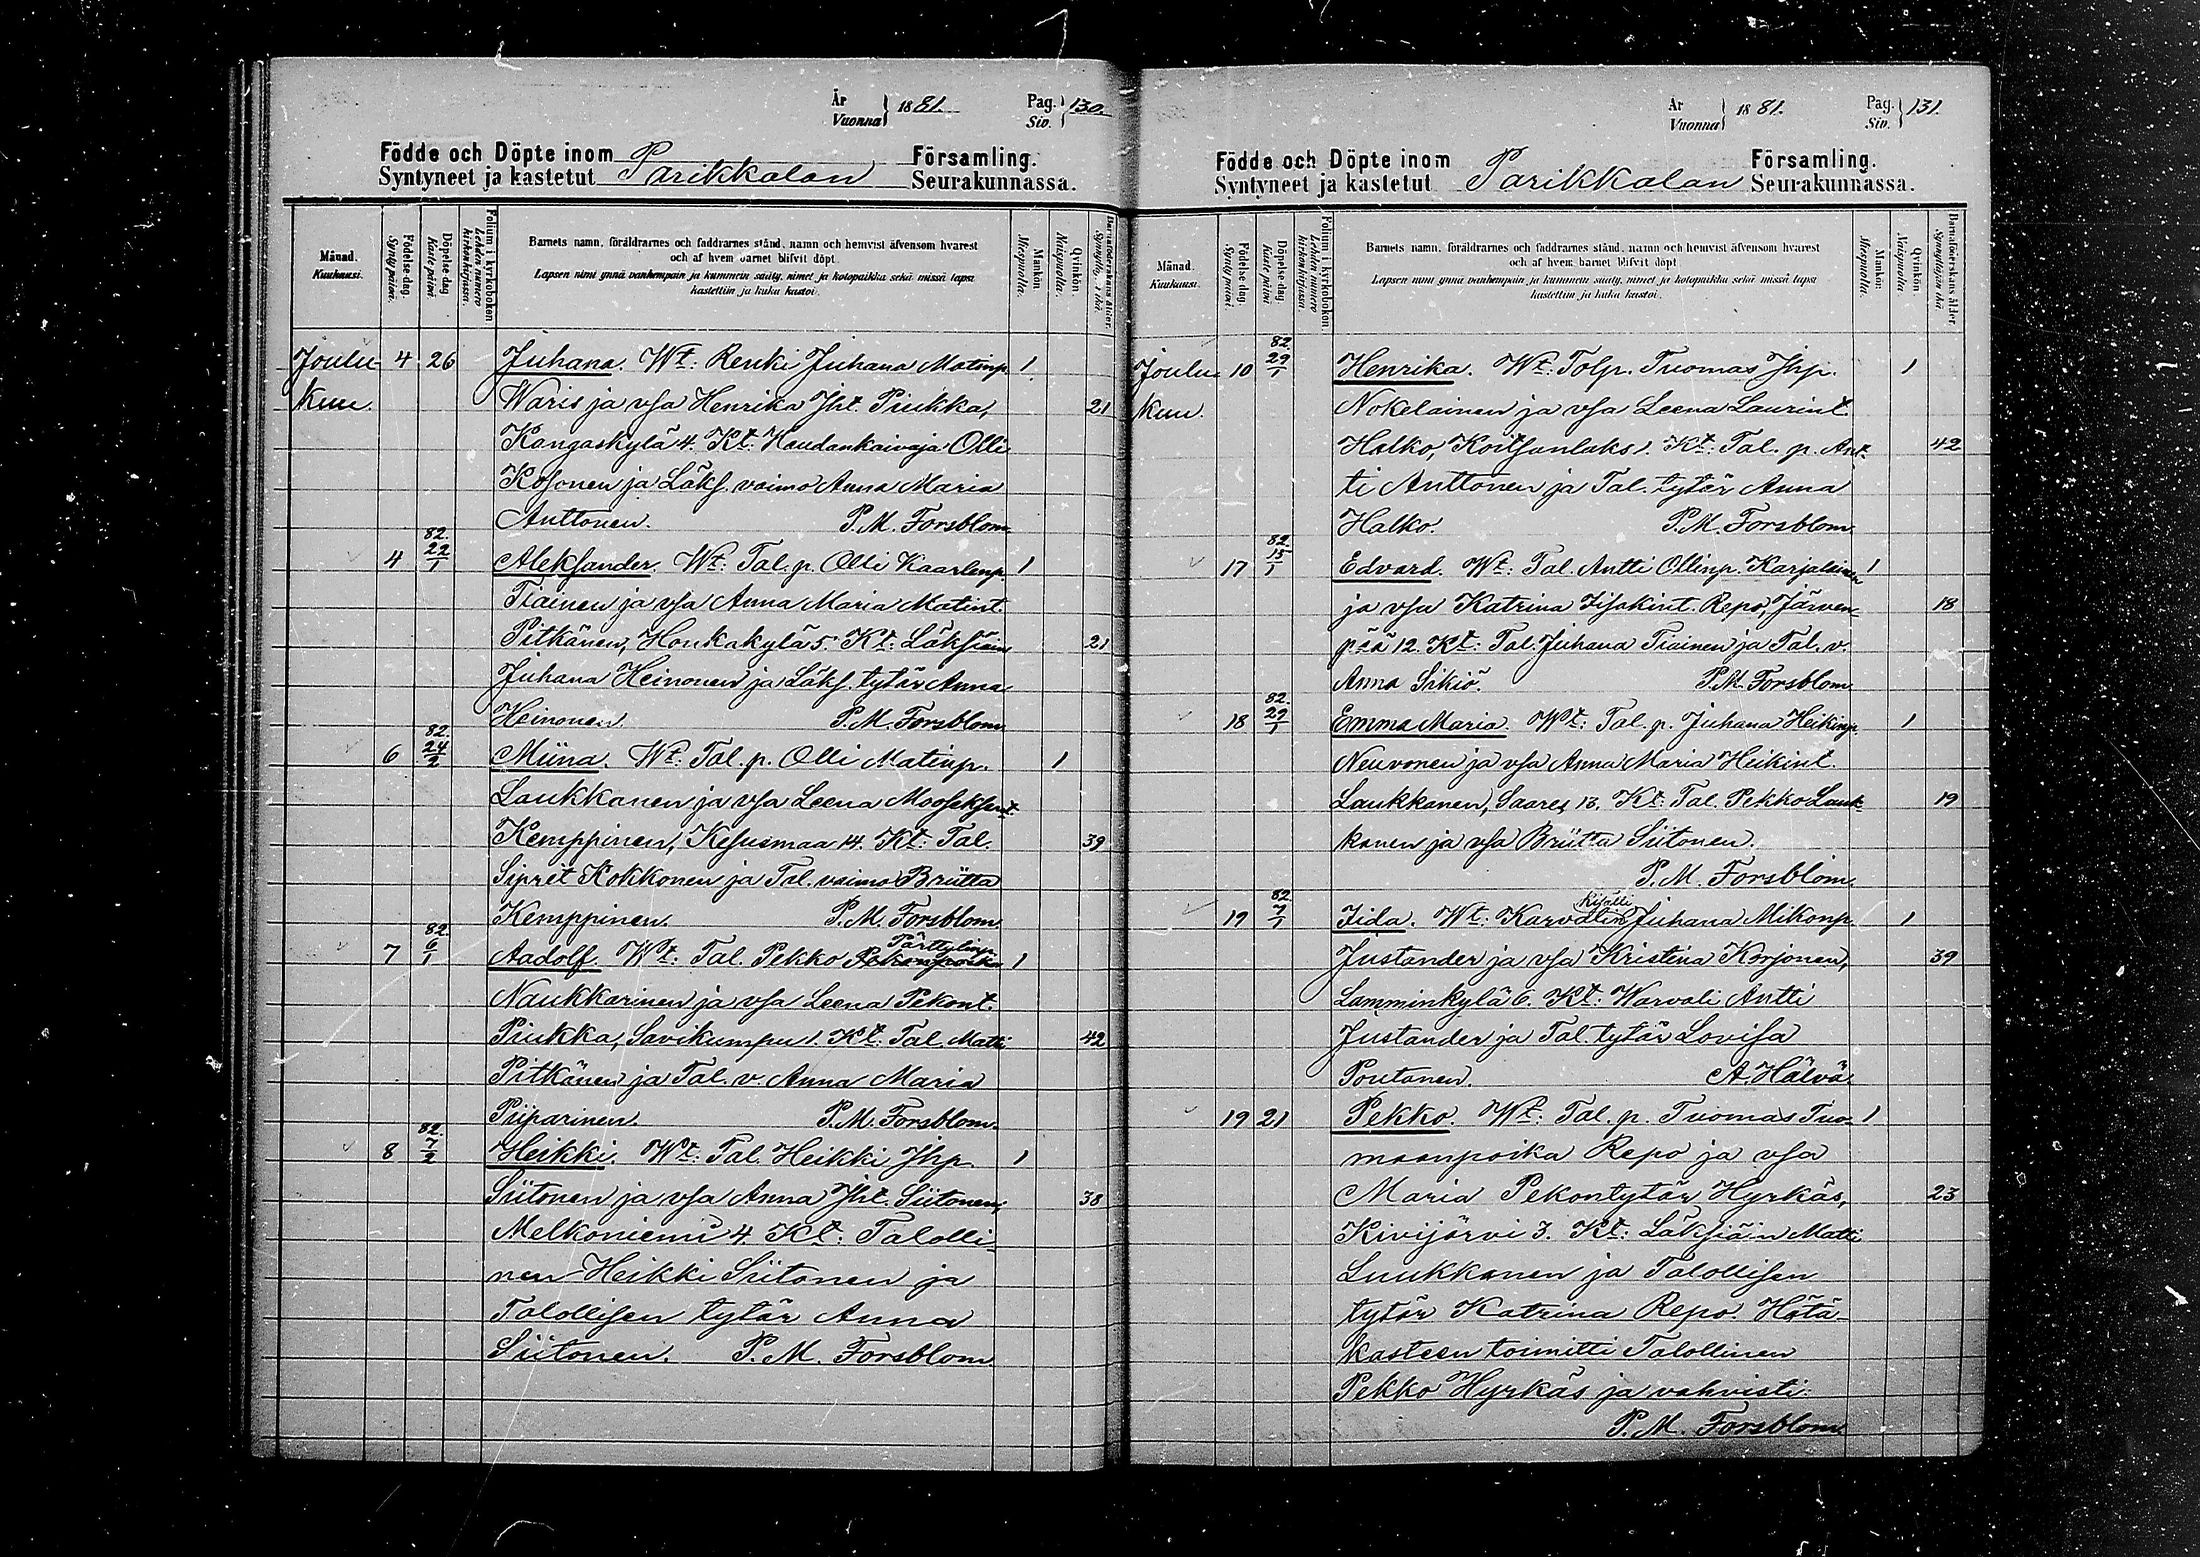 År
Vuonna } 1881. Pag.
Siv. } 130.
Födde och Döpte inom Parikkalan Församling.
Syntyneet ja kastetut Seurakunnassa.
Månad.
Kuukausi.
Födelse-dag.
Syntypäivä.
Döpelse-dag
Kaste päivä.
Folium i kyrkoboken
Lehden numero kirkonkirjassa.
Barnets namn, föräldrarnes och faddrarnes stånd, namn och hemvist äfvensom hvarest
och af hvem barnet blifvit döpt
Lapsen nimi ynnä vanhempain ja kummein sääty, nimet ja kotopaikka sekä missä lapsi
kastettiin ja kuka kastoi.
Mankön.
Miespuolia.
Qvinkön.
Naispuolia.
Barnaföderskans ålder.
Synnyttäjän ikä.
Joulu- 4 26 Juhana. Wt: Renki Juhana Matinp. 1
kuu. Waris ja vsa Henrika Jht. Piukka, 21
Kangaskylä 4. Kt: Haudankaivaja Olli
Kosonen ja Läks. vaimo Anna Maria
Anttonen. P.M. Forsblom.
4 82. 22/1 Aleksander. Wt: Tal. p. Olli Kaarlenp. 1
Tiainen ja vsa Anna Maria Matint.
Pitkänen, Honkakylä 5. Kt: Läksiäin 21
Juhana Heinonen ja Läks. tytär Anna
Heinonen. P.M. Forsblom.
6 82. 24/2 Miina. Wt: Tal. p. Olli Matinp. 1
Laukkanen ja vsa Leena Mooseksent.
Kemppinen, Kesusmaa 14. Kt: Tal. 39
Siprét Kokkonen ja Tal. vaimo Briitta
Kemppinen. P.M. Forsblom.
Pärttylinp.
7 82. 6/1 Aadolf. Wt: Tal. Pekko Pekonpoika 1
Naukkarinen ja vsa Leena Pekont.
Piukka, Savikumpu 1. Kt: Tal. Matti 42
Pitkänen ja Tal. v. Anna Maria
Piiparinen. P.M. Forsblom.
8 82. 7/2 Heikki. Wt: Tal. Heikki Jhp. 1
Siitonen ja vsa Anna Jht. Siitonen, 38
Melkoniemi 4. Kt: Talolli-
nen Heikki Siitonen ja
Talollisen tytär Anna
Siitonen. P.M. Forsblom.
År
Vuonna } 1881. Pag.
Siv. } 131.
Födde och Döpte inom Parikkalan Församling.
Syntyneet ja kastetut Seurakunnassa.
Månad.
Kuukausi.
Födelse-dag.
Syntypäivä.
Döpelse-dag
Kaste päivä.
Folium i kyrkoboken
Lehden numero kirkonkirjassa.
Barnets namn, föräldrarnes och faddrarnes stånd, namn och hemvist äfvensom hvarest
och af hvem barnet blifvit döpt
Lapsen nimi ynnä vanhempain ja kummein sääty, nimet ja kotopaikka sekä missä lapsi
kastettiin ja kuka kastoi.
Mankön.
Miespuolia.
Qvinkön.
Naispuolia.
Barnaföderskans ålder.
Synnyttäjän ikä.
Joulu- 10 82. 29/1 Henrika. Wt: Tolp. Tuomas Jhp. 1
kuu. Nokelainen ja vsa Leena Laurint.
Halko, Koitsanlaks 1. Kt: Tal. p. Ant- 42
ti Anttonen ja Tal. tytär Anna
Halko. P.M. Forsblom.
17 82. 15/1 Edvard. Wt: Tal. Antti Ollinp. Karjalainen 1
ja vsa Katrina Iisakint. Repo, Järven- 18
pää 12. Kt: Tal. Juhana Tiainen ja Tal. v.
Anna Sikiö. P.M. Forsblom.
18 82. 29/1 Emma Maria. Wt: Tal. p. Juhana Heikinp. 1
Neuvonen ja vsa Anna Maria Heikint.
Laukkanen, Saares 13. Kt: Tal. Pekko Lauk- 19
kanen ja vsa Briitta Siitonen.
P.M. Forsblom.
19 82. 7/1 Iida. Wt: Juhana Mikonp. 1
Justander ja vsa Kristina Korjonen, 39
Lamminkylä 6. Kt: Warvali Antti
Justander ja Tal. tytär Lovisa
Poutanen. A. Hälvä.
19 21 Pekko. Wt: Tal. p. Tuomas Tuo- 1
maanpoika Repo ja vsa
Maria Pekontytär Hyrkäs, 23
Kivijärvi 3. Kt: Läksiäin Matti
Luukkanen ja Talollisen
tytär Katrina Repo. Hätä-
kasteen toimitti Talollinen
Pekko Hyrkäs ja vahvisti
P.M. Forsblom.